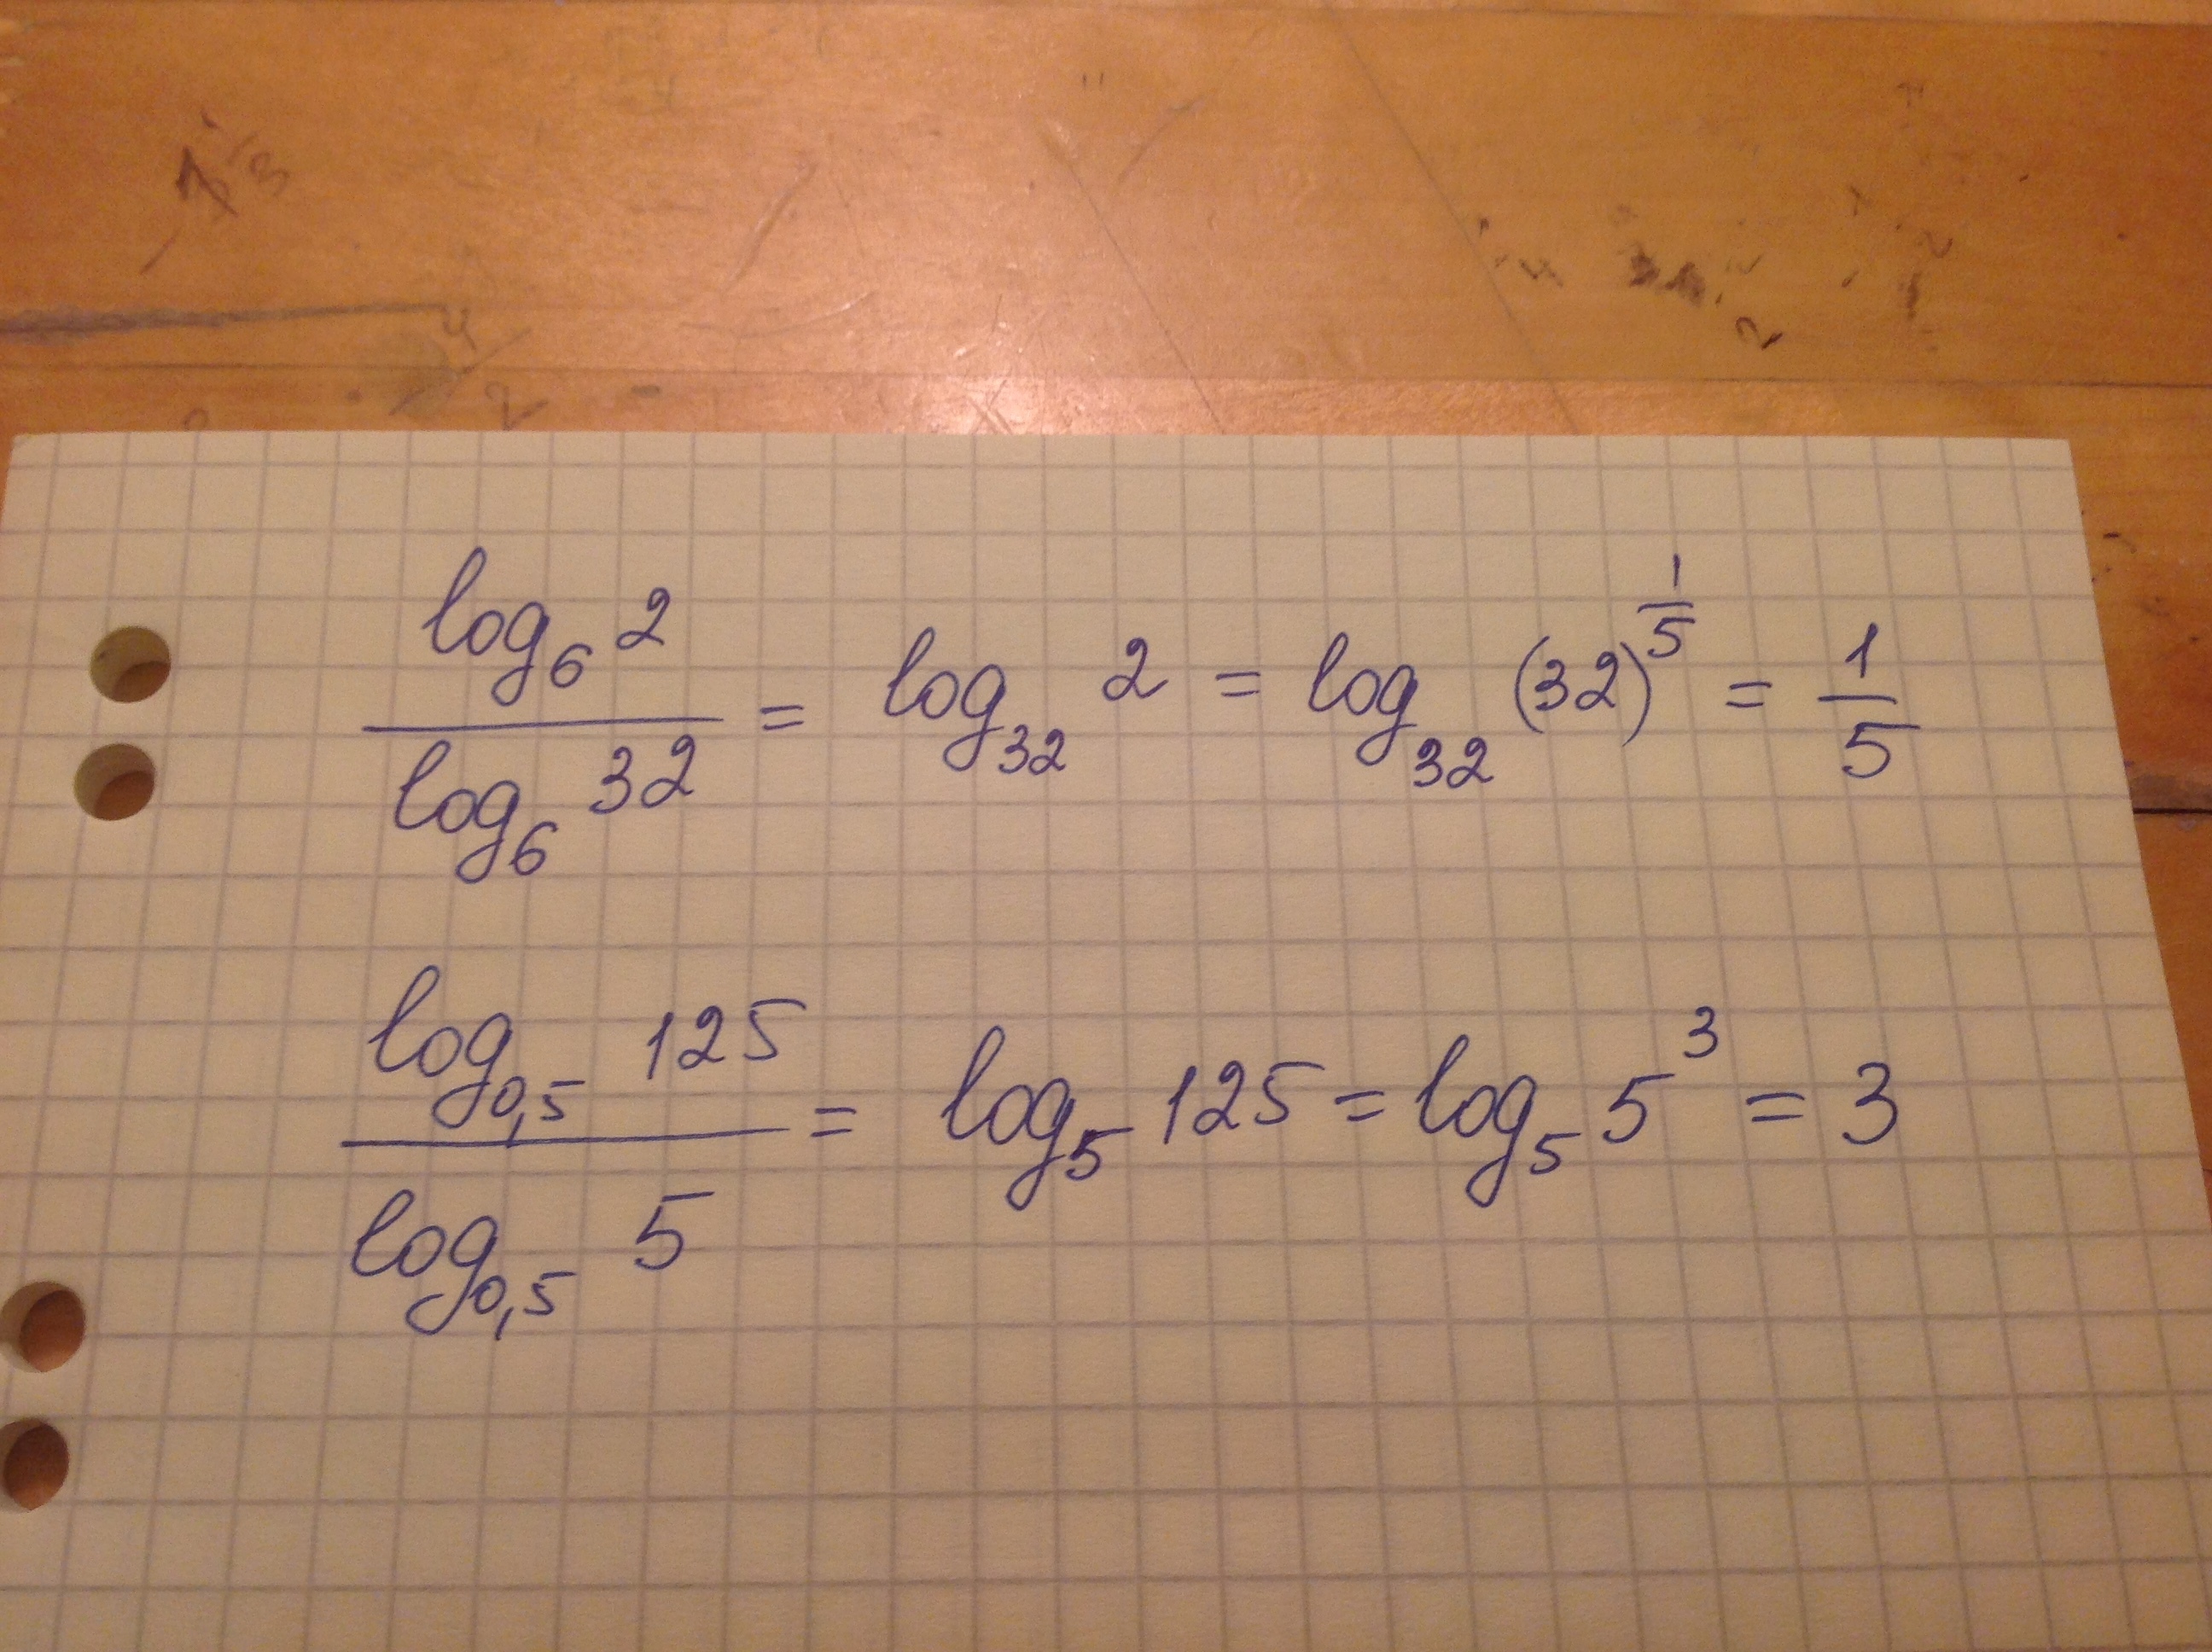 log₆ 2 / log₆ 32 = log₃₂ 2 = log₃₂ (32)^(1/5) = 1/5
log₀,₅ 125 / log₀,₅ 5 = log₅ 125 = log₅ 5³ = 3